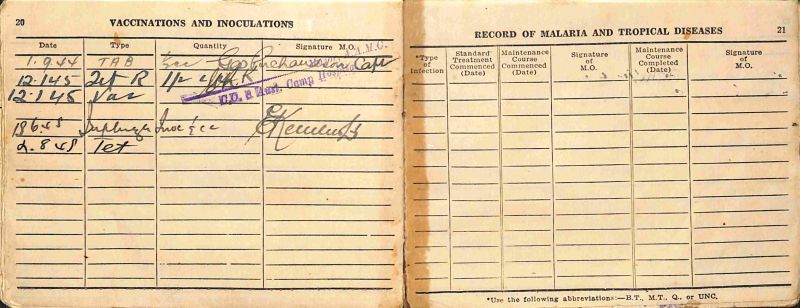 20
VACCINATIONS AND INOCULATIONS
Date Type Quantity Signature M.O.
1.9.44 TAB ½cc Capt
12.1.45 Tet R
12.1.45 Vac
C.O. 8 Aust. Camp Hos
18.6.45 ½cc
2.8.45 Tet
RECORD OF MALARIA AND TROPICAL DISEASES
21
*Type of Infection
Standard Treatment Commenced (Date)
Maintenance Course Commenced (Date)
Signature of M.O.
Maintenance Course Completed (Date)
Signature of M.O.
*Use the following abbreviations:—B.T., M.T., Q., or UNC.